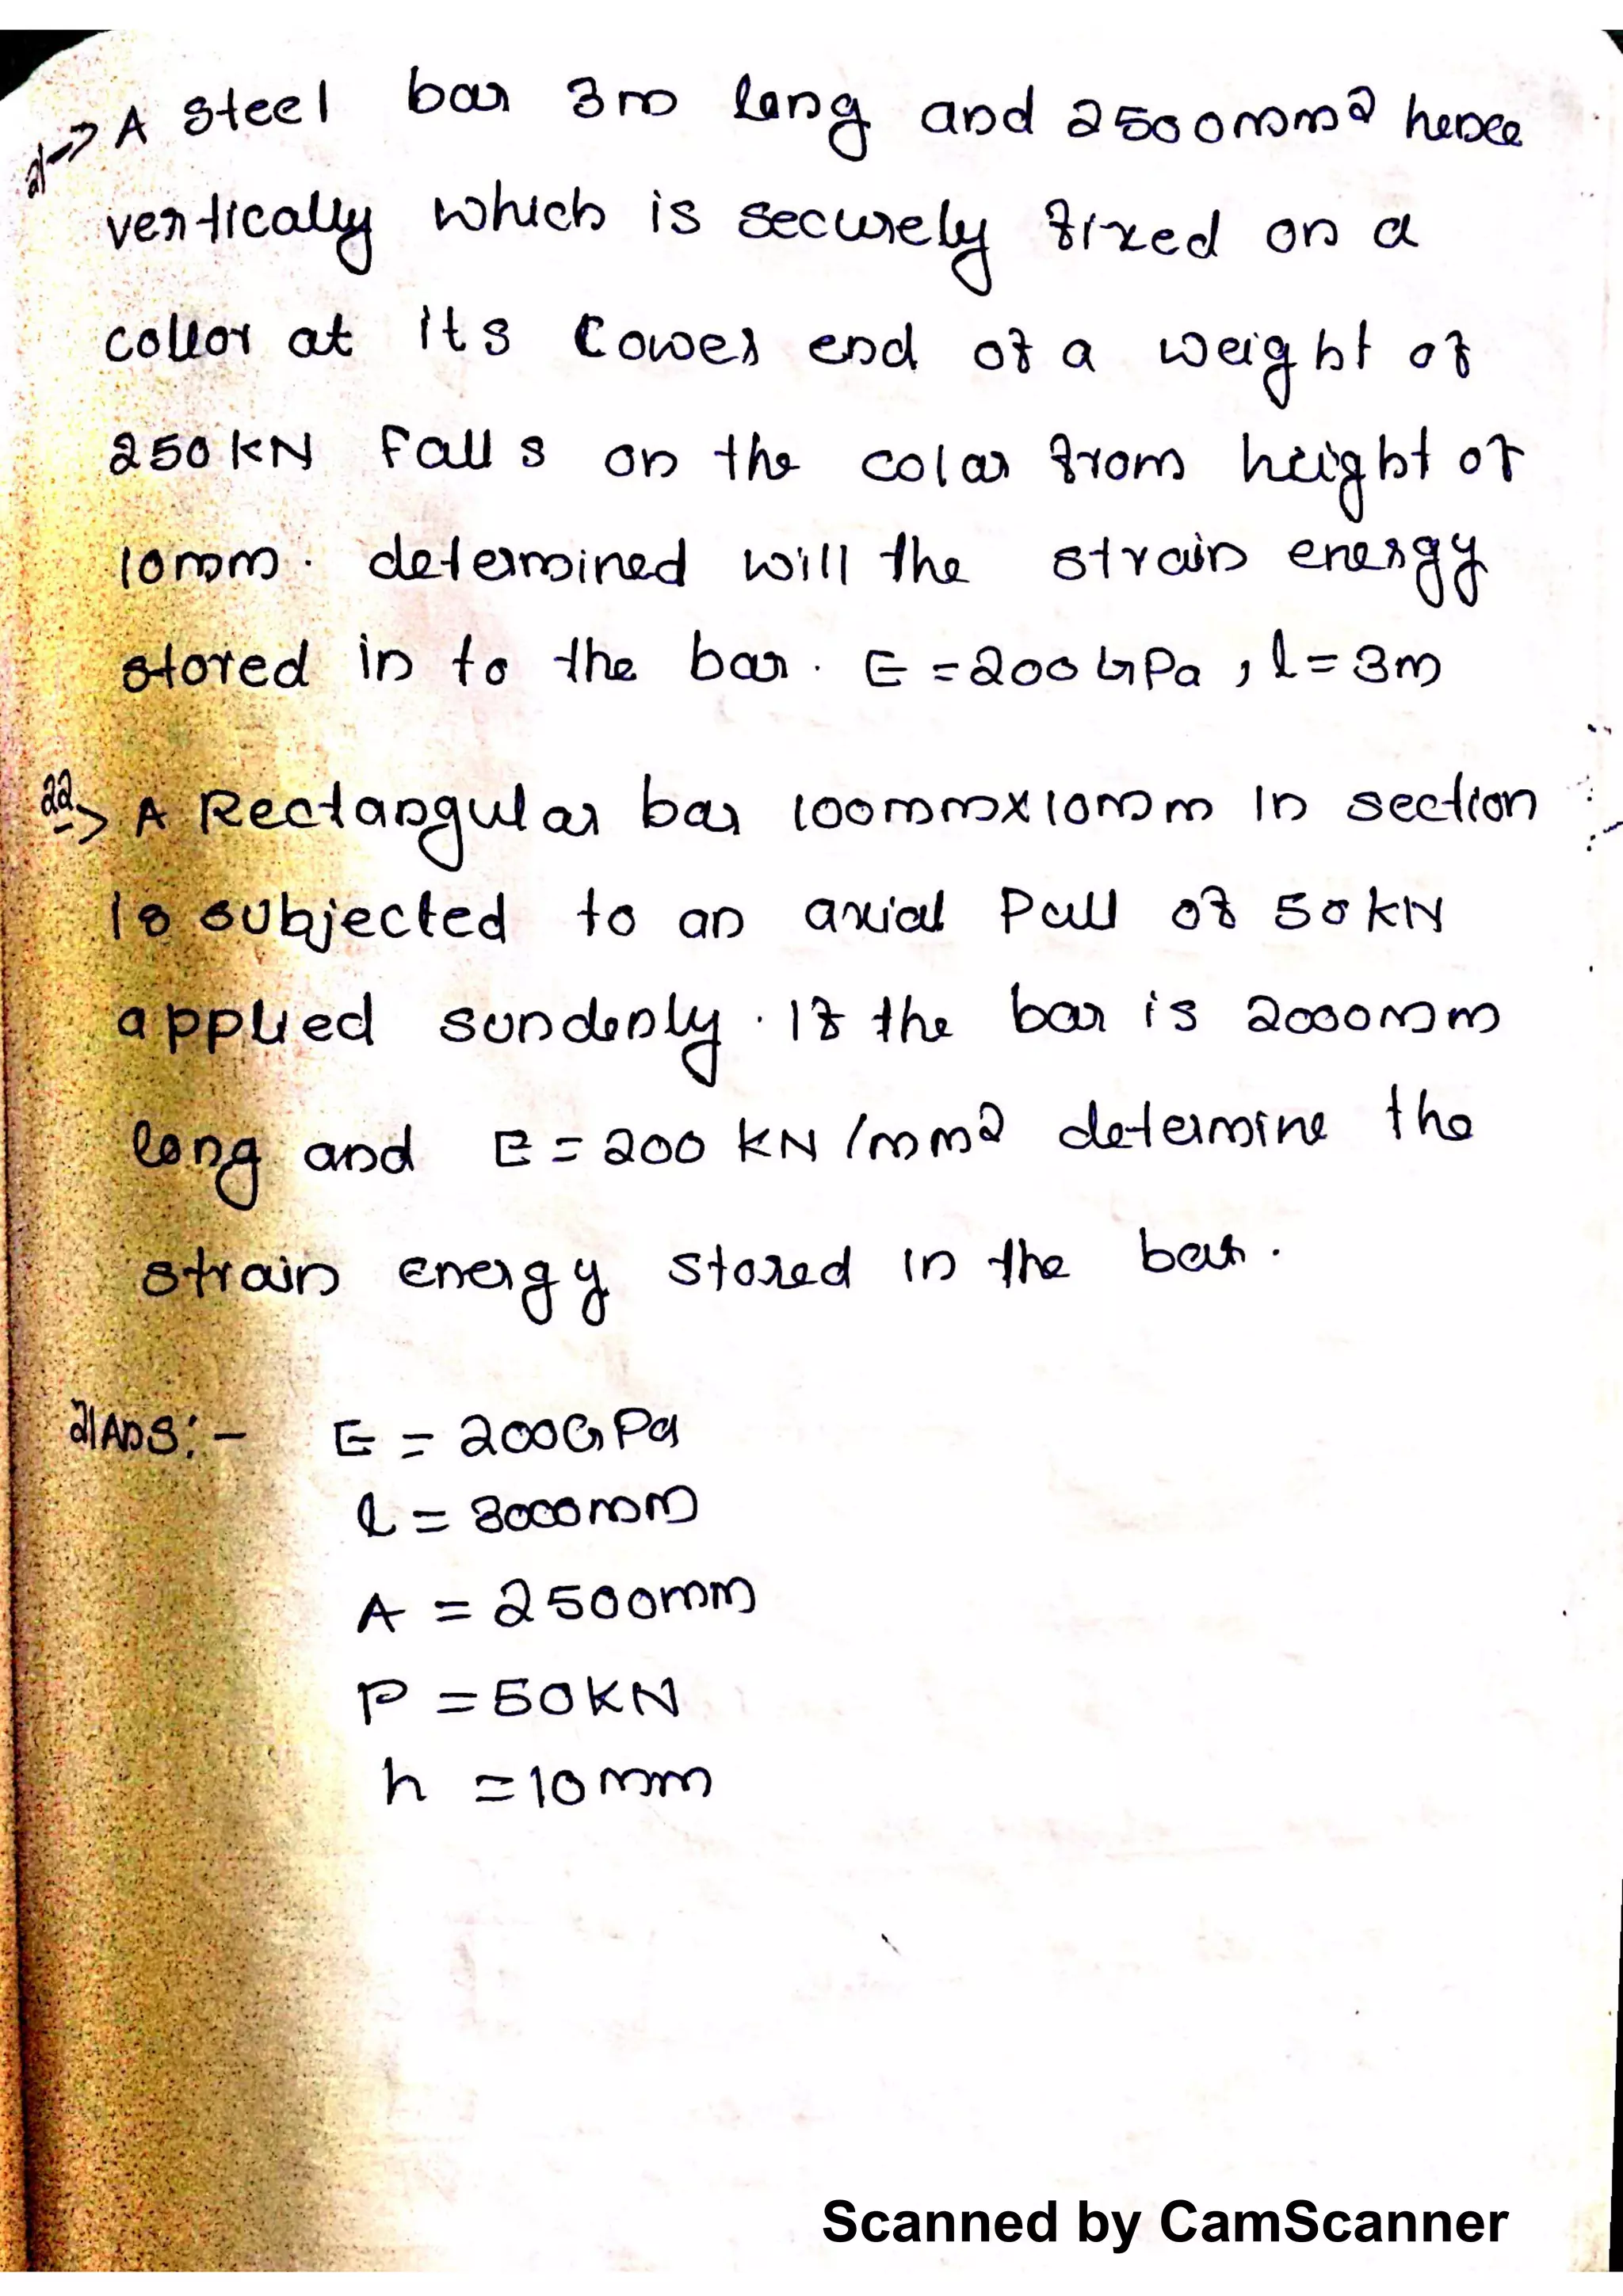 21→ A steel bar 3m long and 2500mm2 hence
vertically which is securely fixed on a
collor at its Lower end of a weight of
250KN Falls on the colar from height of
10mm. determined will the strain energy
stored in to the bar. E = 200 GPa, l = 3m
22→ A Rectangular bar 100mmx10mm in section
is subjected to an axial Pull of 50KN
applied sundenly. If the bar is 2000mm
long and E = 200 KN/mm2 determine the
strain energy stored in the bar.
21Ans:- E = 200GPa
l = 3000mm
A = 2500mm
P = 50KN
h = 10mm
Scanned by CamScanner